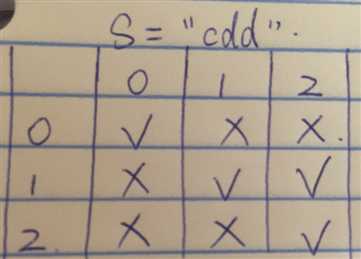 S = "cdd".
0 1 2
0 √ × ×.
1 × √ √
2. × × √